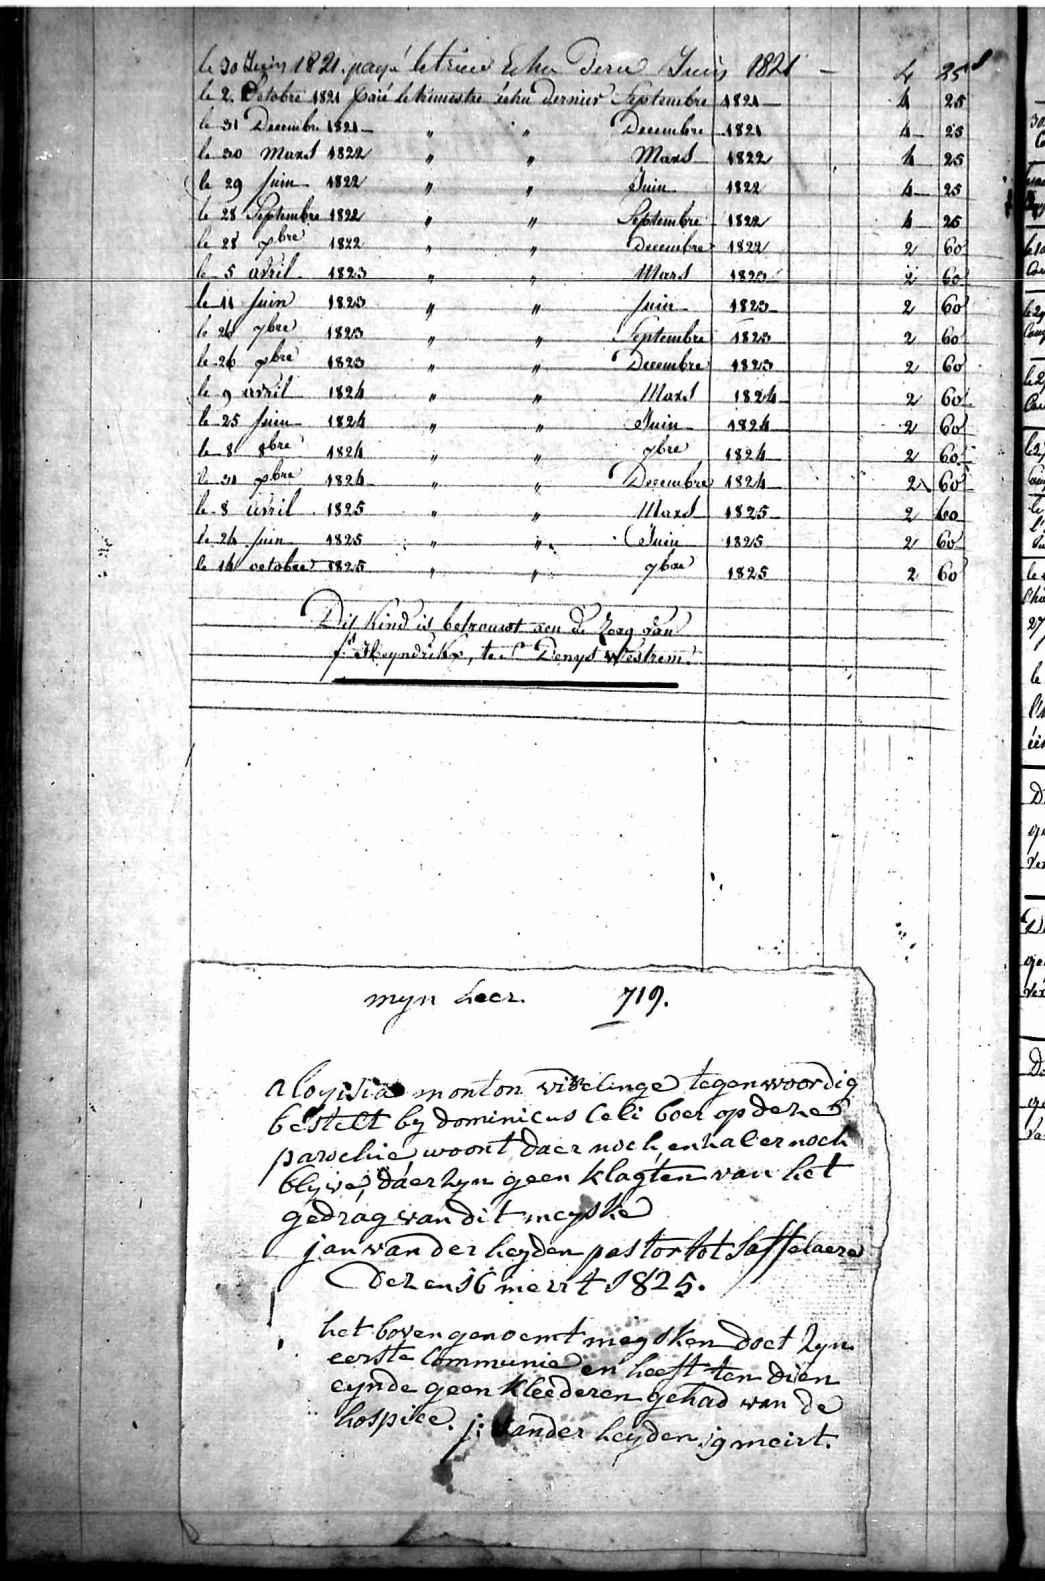 le 30 Juin 1821 payé le trim Echu Dern Juin 1821 — 4 25
le 2. Octobre 1821 paié le trimestre échu dernier Septembre 1821 4 25
le 31 Decembre 1821 " " Decembre 1821 4 25
le 30 Mars 1822 " " Mars 1822 4 25
le 29 Juin 1822 " " Juin 1822 4 25
le 28 Septembre 1822 " " Septembre 1822 4 25
le 28 xbre 1822 " " Decembre 1822 2 60
le 5 avril 1823 " " Mars 1823 2 60
le 11 Juin 1823 " " Juin 1823 2 60
le 26 7bre 1823 " " Septembre 1823 2 60
le 26 xbre 1823 " " Decembre 1823 2 60
le 9 avril 1824 " " Mars 1824 2 60
le 25 Juin 1824 " " Juin 1824 2 60
le 8 8bre 1824 " " 7bre 1824 2 60
le 31 xbre 1824 " " Decembre 1824 2 60
le 8 avril 1825 " " Mars 1825 2 60
le 24 Juin 1825 " " Juin 1825 2 60
le 14 octobre 1825 " " 7bre 1825 2 60
Dit Kind is betrouwt aen de Zorg van
Heyndrikx, te St Denys Westrem.
myn heer. 719.
aloyisia monton vindelinge tegenwoordig
bestelt by dominicus Celi boer op deze
parochie woont daer noch, en zal er noch
blyve, daer zyn geen klagten van het
gedrag van dit meyske
jan van der heyden pastor tot Saffelaere
dezen 16 meirt 1825.
het bovengenoemt meysken doet zyn
eerste Communie en heeft ten dien
eynde geen kleederen gehad van de
hospice. j: vander heyden 19 meirt.